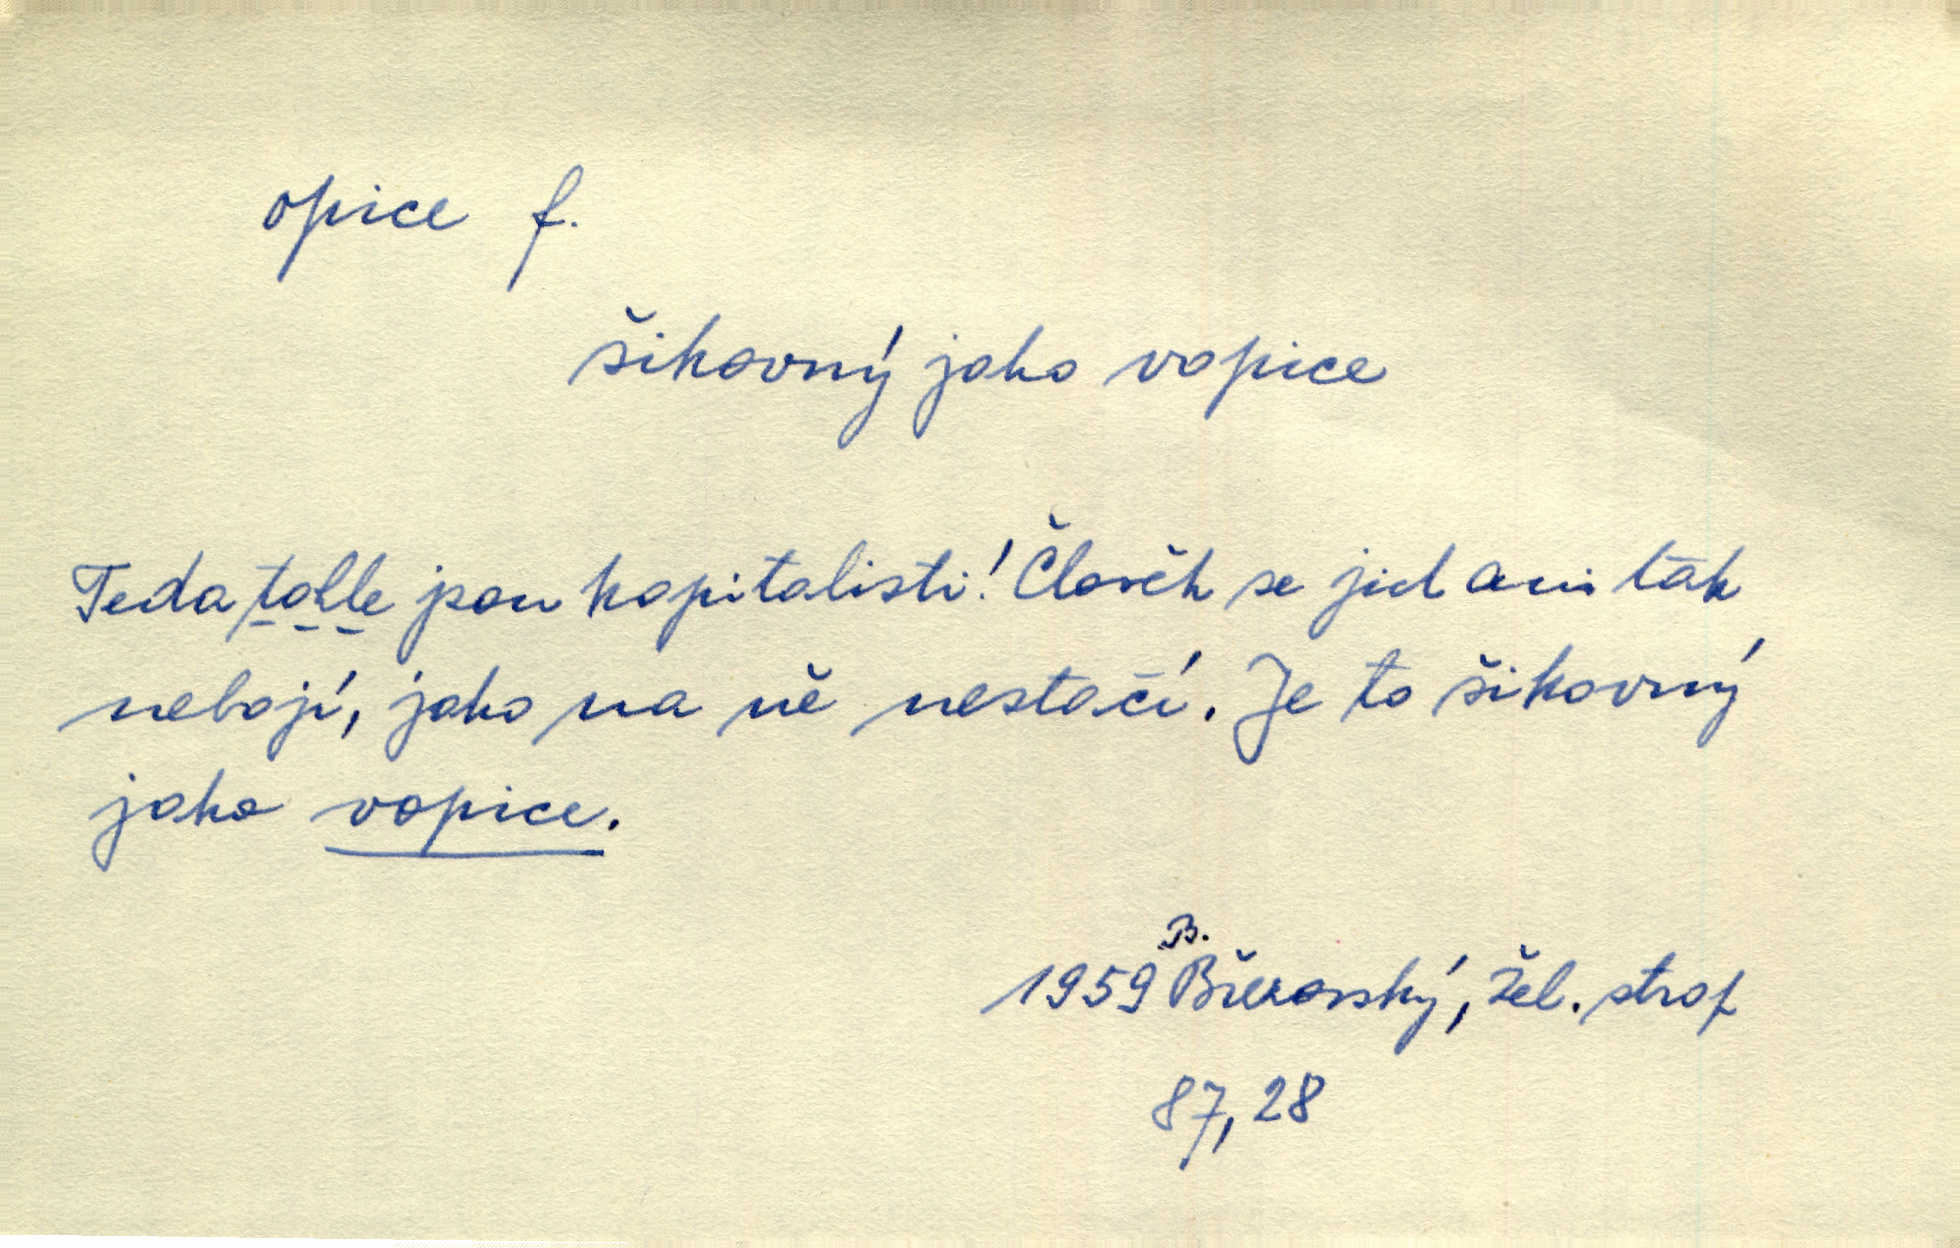 opice f.
šikovný jako vopice
Teda tohle jsou kapitalisti! Člověk se jich ani tak
nebojí, jako na ně nestačí. Je to šikovný
jako vopice.
B.
1959 Březovský, Žel. strop
87, 28